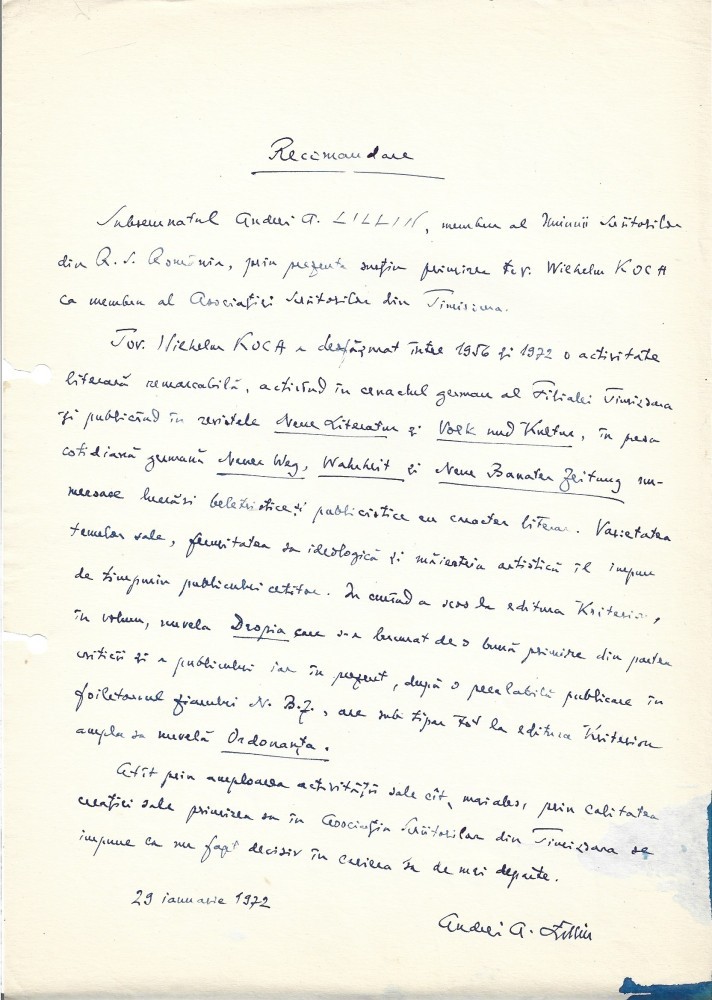 Recomandare
Subsemnatul Andrei A. LILLIN, membru al Uniunii Scriitorilor
din R. S. România, prin prezenta susțin primirea tov. Wilhelm KOCA
ca membru al Asociației Scriitorilor din Timișoara.
Tov. Wilhelm KOCA a desfășurat între 1956 și 1972 o activitate
literară remarcabilă, activînd în cenaclul german al Filialei Timișoara
și publicînd în revistele Neue Literatur și Volk und Kultur, în presa
cotidiană germană Neuer Weg, Wahrheit și Neue Banater Zeitung nu-
meroase lucrări beletristice și publicistice cu caracter literar. Varietatea
temelor sale, fermitatea sa ideologică și măiestria artistică îl impun
de timpuriu publicului cititor. În curînd a scos la editura Kriterion,
în volum, nuvela Dropia care s-a bucurat de o bună primire din partea
criticii și a publicului iar în prezent, după o prealabilă publicare în
foiletonul ziarului N. B. Z., are sub tipar tot la editura Kriterion
ampla sa nuvelă Ordonanța.
Atît prin amploarea activității sale cît, mai ales, prin calitatea
creației sale primirea sa în Asociația Scriitorilor din Timișoara se
impune ca un fapt decisiv în cariera sa de mai departe.
29 ianuarie 1972
Andrei A. Lillin